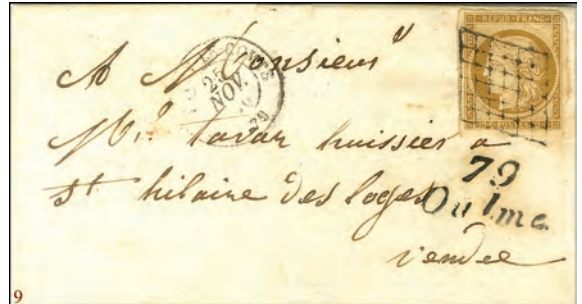 REPUB. FRANC.
25
NOV.
A Monsieur
Mr. tavar huissier a
79
St hilaire des loges
Oulme.
vendee
9